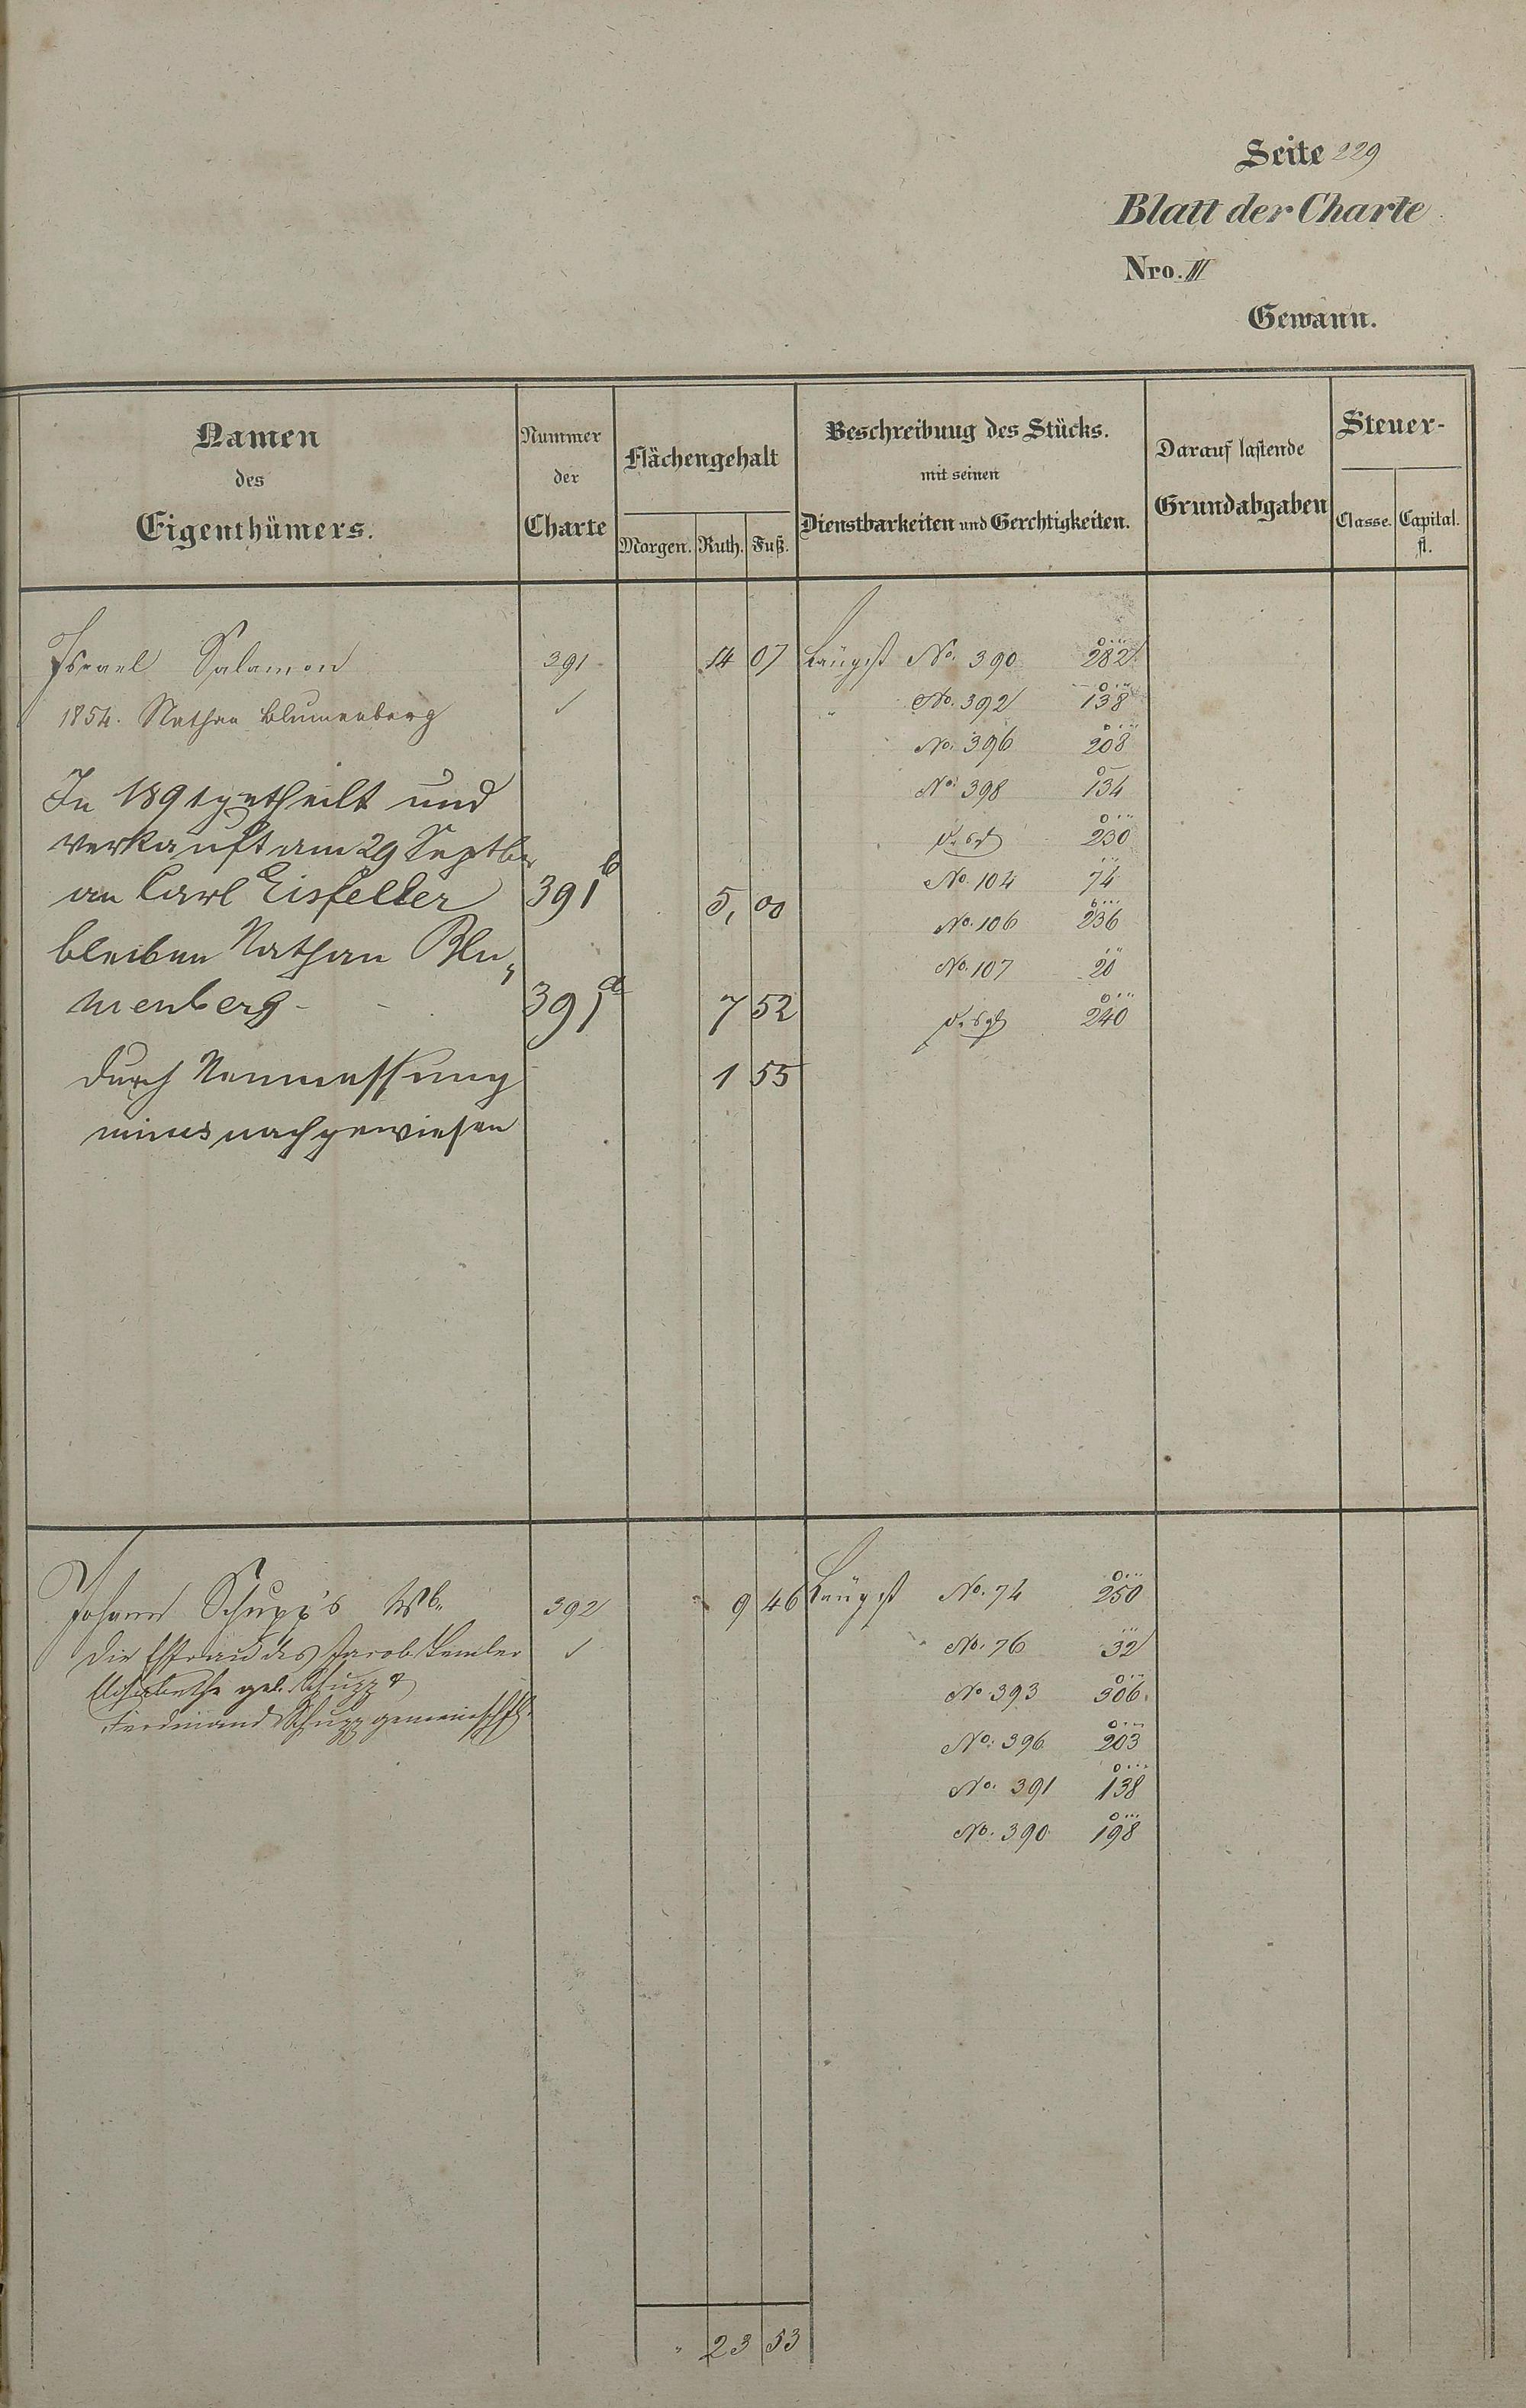 Seite 229
Blatt der Charte
Nro. III
Gewann.
Namen des Eigenthümers.
Nummer der Charte
Flächengehalt
Morgen. Ruth. Fuß.
Beschreibung des Stücks.
mit seinen
Dienstbarkeiten und Gerchtigkeiten.
Darauf lastende
Grundabgaben
Steuer-
Classe. Capital.
fl.
Israel Salamon 391 14 07 Längst No. 390 282
1854. Nathan Blumenberg No. 392 138
No. 396 208
In 1891 getheilt und No. 398 134
verkauft am 29 Septber 230
an Carl Eisfelder 391 b 5, 00 No. 104 74
No. 106 236
bleiben Nathan Blu- No. 107 20
menberg - 391 a 7 52 240
durch Neumessung 1 55
minus nachgewiesen
Johann Schupp's Wb. 392 9 46 Längst No. 74 250
die Ehfrau des Jacob No. 76 32
Elisabethe geb. Schupp & No. 393 306
Ferdinand Schupp gemeinschftl.
No. 396 203
No. 391 138
No. 390 198
23 53